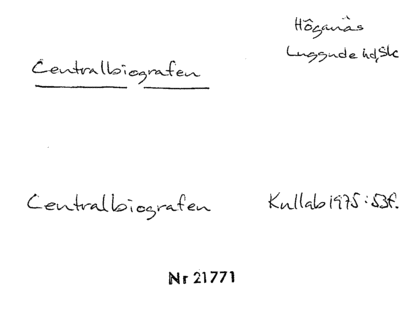 Höganäs
Luggude hd, Sk
Centralbiografen
Centralbiografen Kullab 1975:53f.
Nr 21771